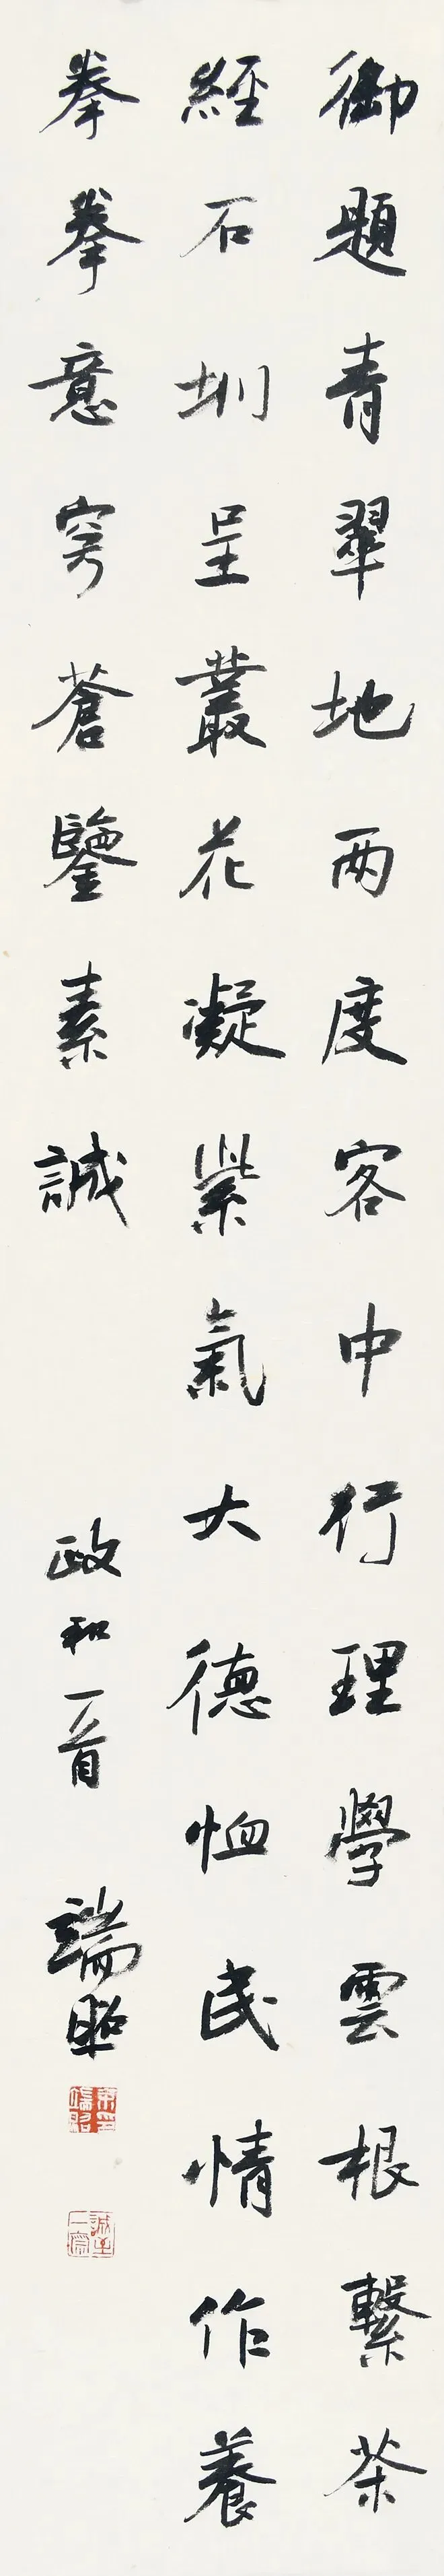 御題青翠地两度客中行理學雲根繫茶
經石圳呈叢花凝紫氣大德恤民情作養
拳拳意穹蒼鑒素誠
政和一首 端昭